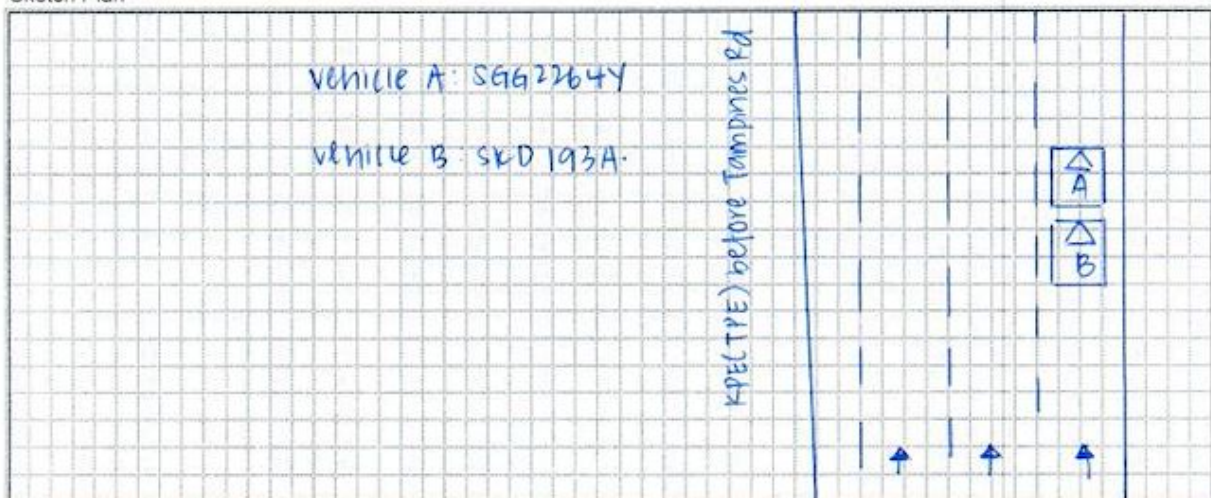 Vehicle A: SGG2264Y
Vehicle B: SKD 193A.
KPE(TPE) before Tampines Rd
A
B